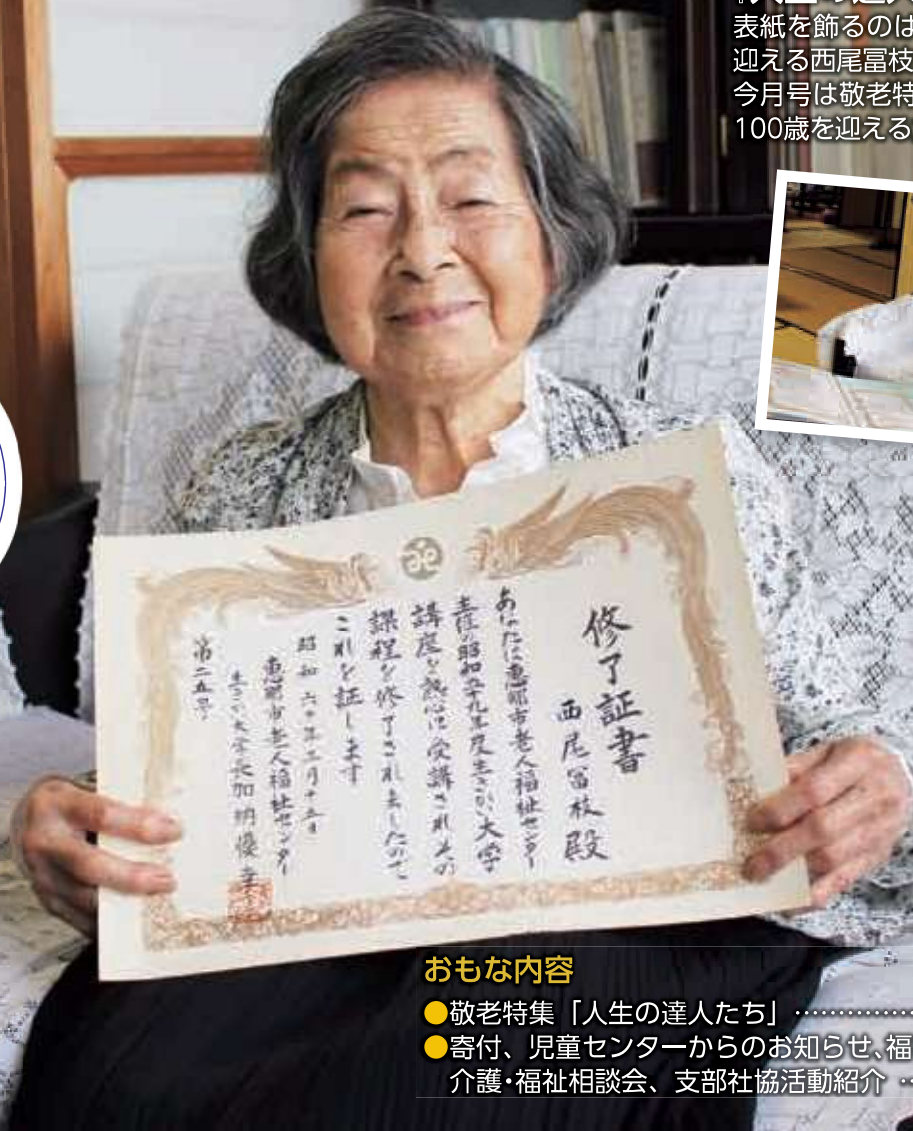 表紙を飾るのは
迎える西尾冨枝
今月号は敬老特
100歳を迎える
修了証書
西尾冨枝殿
あなたは恵那市老人福祉センター
主催の昭和五十九年度生きがい大学
講座を熱心に受講され
課程を修了されましたので
これを証します
昭和六十年三月十五日
恵那市老人福祉センター
生きがい大学長加納
第二五号
おもな内容
●敬老特集「人生の達人たち」
●寄付、児童センターからのお知らせ、福
介護・福祉相談会、支部社協活動紹介